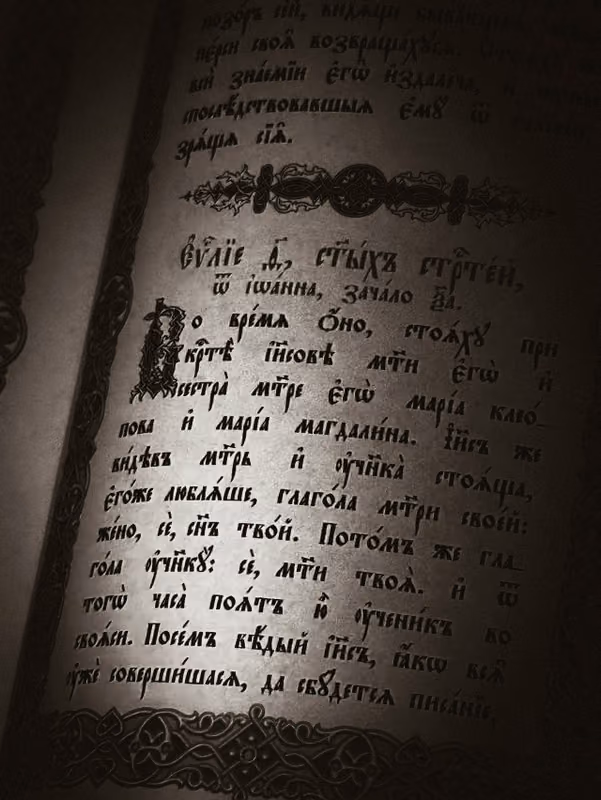 позо́ръ се́й, ви́дяще быва́ющая,
пе́рси своѧ̑ возвраща́хꙋсѧ.
всѝ зна́емїи є҆гѡ̀ и҆здале́ча, и҆
спослѣ́дствовавшыѧ є҆мꙋ̀ ѿ
зрѧ́щѧ сїѧ̑.
Є҆ѵⷢ҇лїе д҃, ст҃ы́хъ стрⷭ҇те́й,
ѿ і҆ѡа́нна, зача́ло ѯ҃а.
Во вре́мѧ ѻ҆́но, стоѧ́хꙋ при
крⷭ҇тѣ̀ і҆и҃совѣ мт҃и є҆гѡ̀ и҆
сестра̀ мт҃ре є҆гѡ̀ марі́а клео́-
пова и҆ марі́а магдали́на. І҆и҃съ же
ви́дѣвъ мт҃рь и҆ ᲂу҆чн҃ка̀ стоѧ́ща,
є҆го́же люблѧ́ше, глаго́ла мт҃ри свое́й:
же́но, сѐ, сн҃ъ тво́й. Пото́мъ же гла-
го́ла ᲂу҆чн҃кꙋ̀: сѐ, мт҃и твоѧ̀. и҆ ѿ
тогѡ̀ часа̀ поѧ́тъ ю҆̀ ᲂу҆чени́къ во
своѧ́си. Посе́мъ вѣ́дый і҆и҃съ, ꙗ҆́кѡ всѧ̑
ᲂу҆жѐ соверши́шасѧ, да сбꙋ́детсѧ писа́нїе,